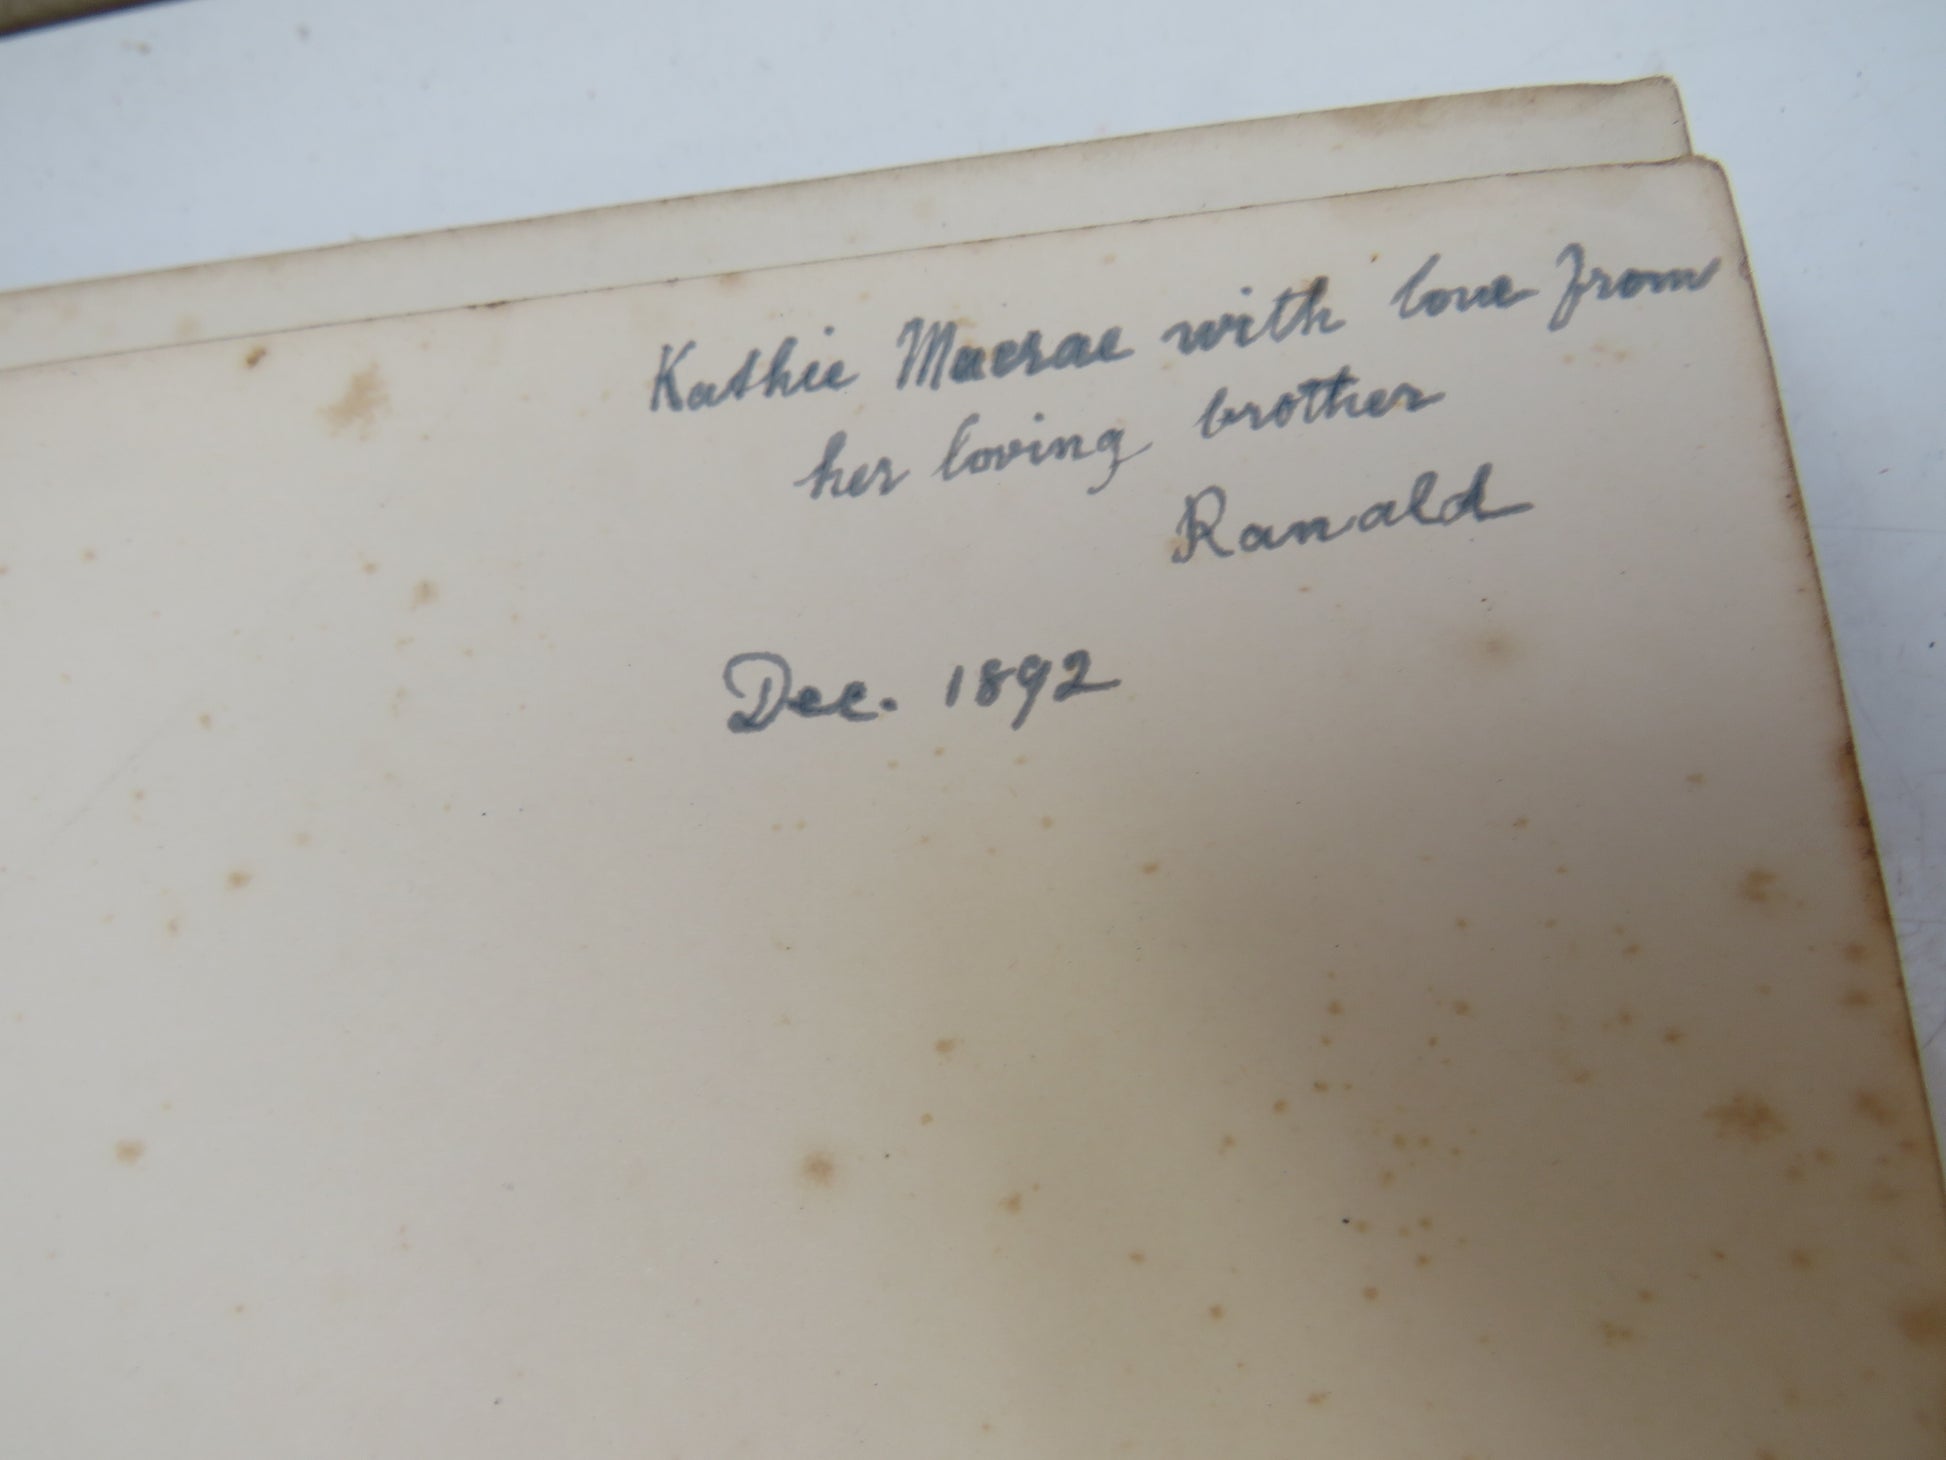 Kathie Macrae with love from
her loving brother
Ranald
Dec. 1892